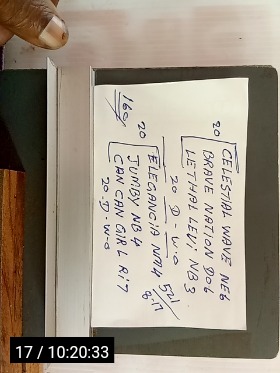 20 CELESTIAL WAVE NE6
BRAVE NATION DO6
LETHAL LEVI NB3
20 D-W-O
20 ELEGANCIA NM4
JUMBY NB4
CAN CAN GIRL R17
20-D-W-O
160/
17 / 10:20:33